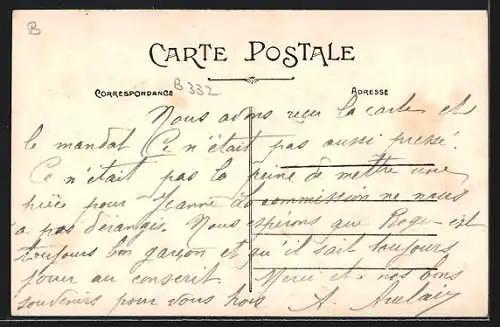 B
CARTE POSTALE
B 332
CORRESPONDANCE
ADRESSE
Nous avons reçu la carte et
le mandat Ce n'était pas aussi pressé.
Ce n'était pas la peine de mettre une
pièce pour Jeanne La commission ne nous
a pas dérangés. Nous espérons que Roger est
toujours bon garçon et qu'il sait toujours
jouer au conscrit Merci et nos bons
souvenirs pour vous trois A.